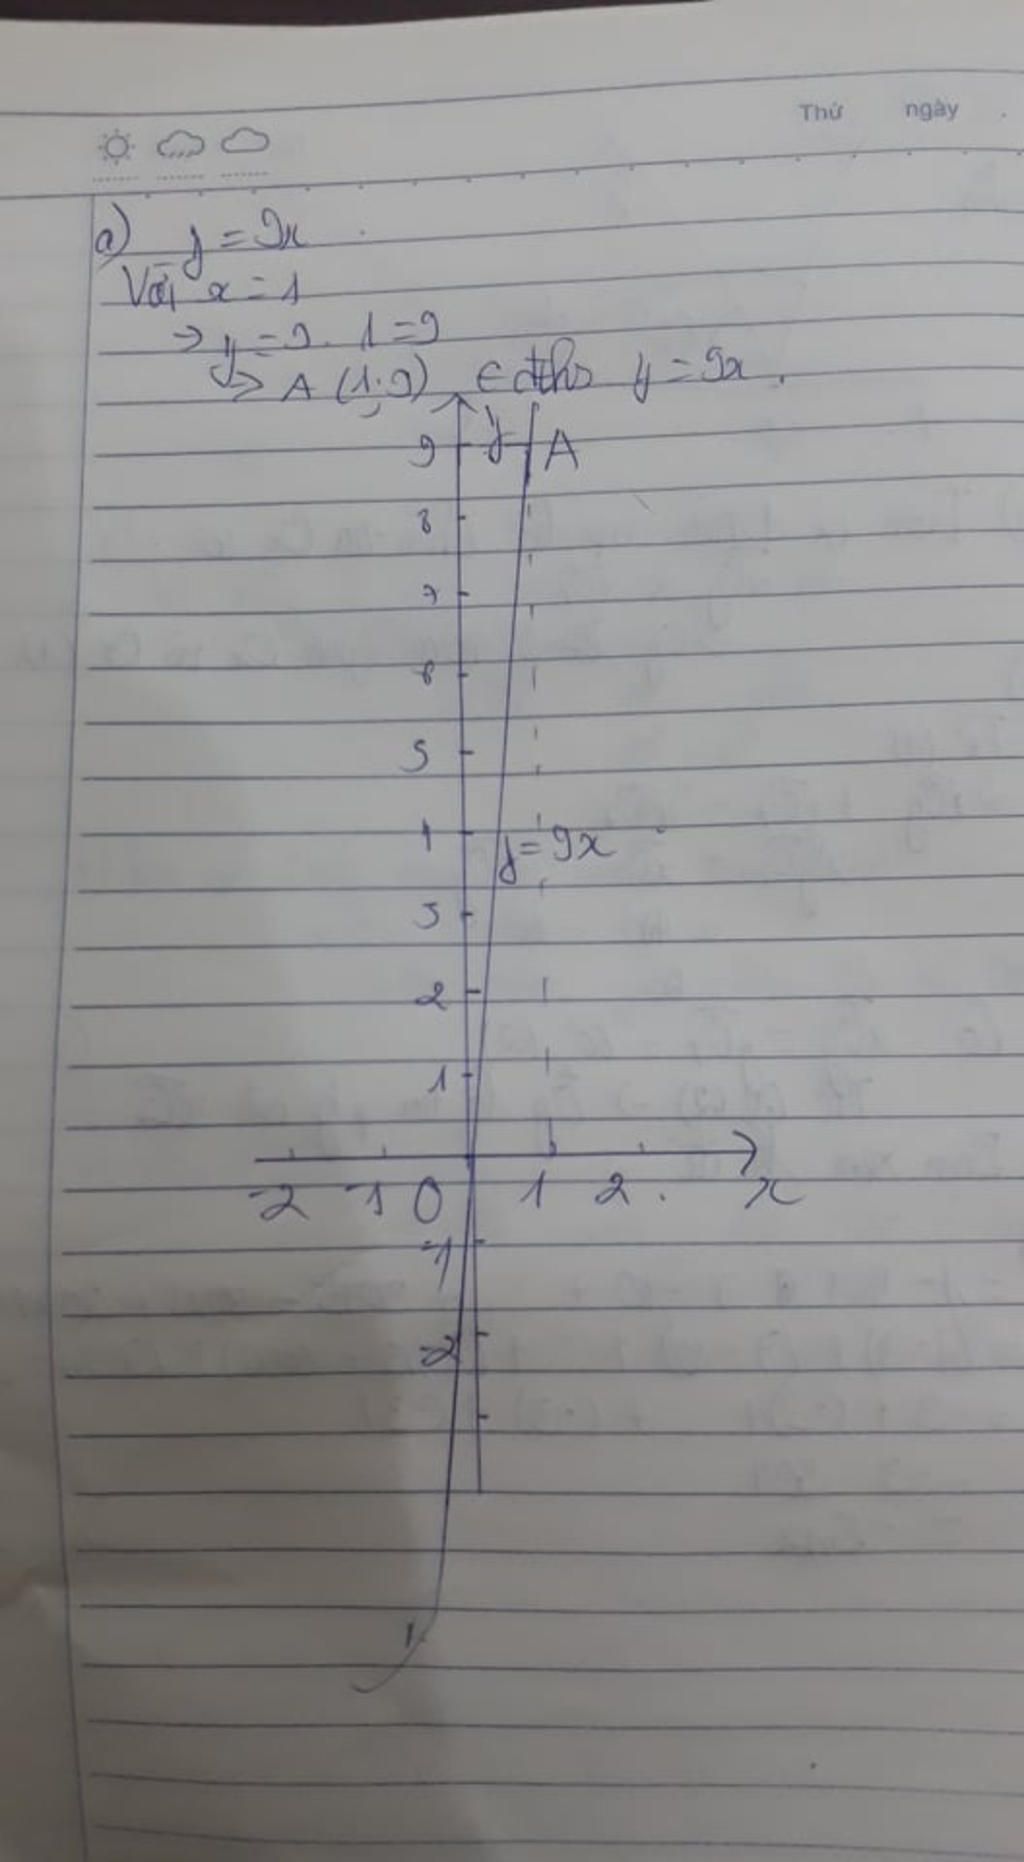 Thứ ngày
a) y = 9x
Với x = 1
→ y = 9 . 1 = 9
→ A (1;9) ∈ đths y = 9x .
9 y A
8
7
6
5
4
y = 9x
3
2
1
-2 -1 0 1 2 . x
-1
-2